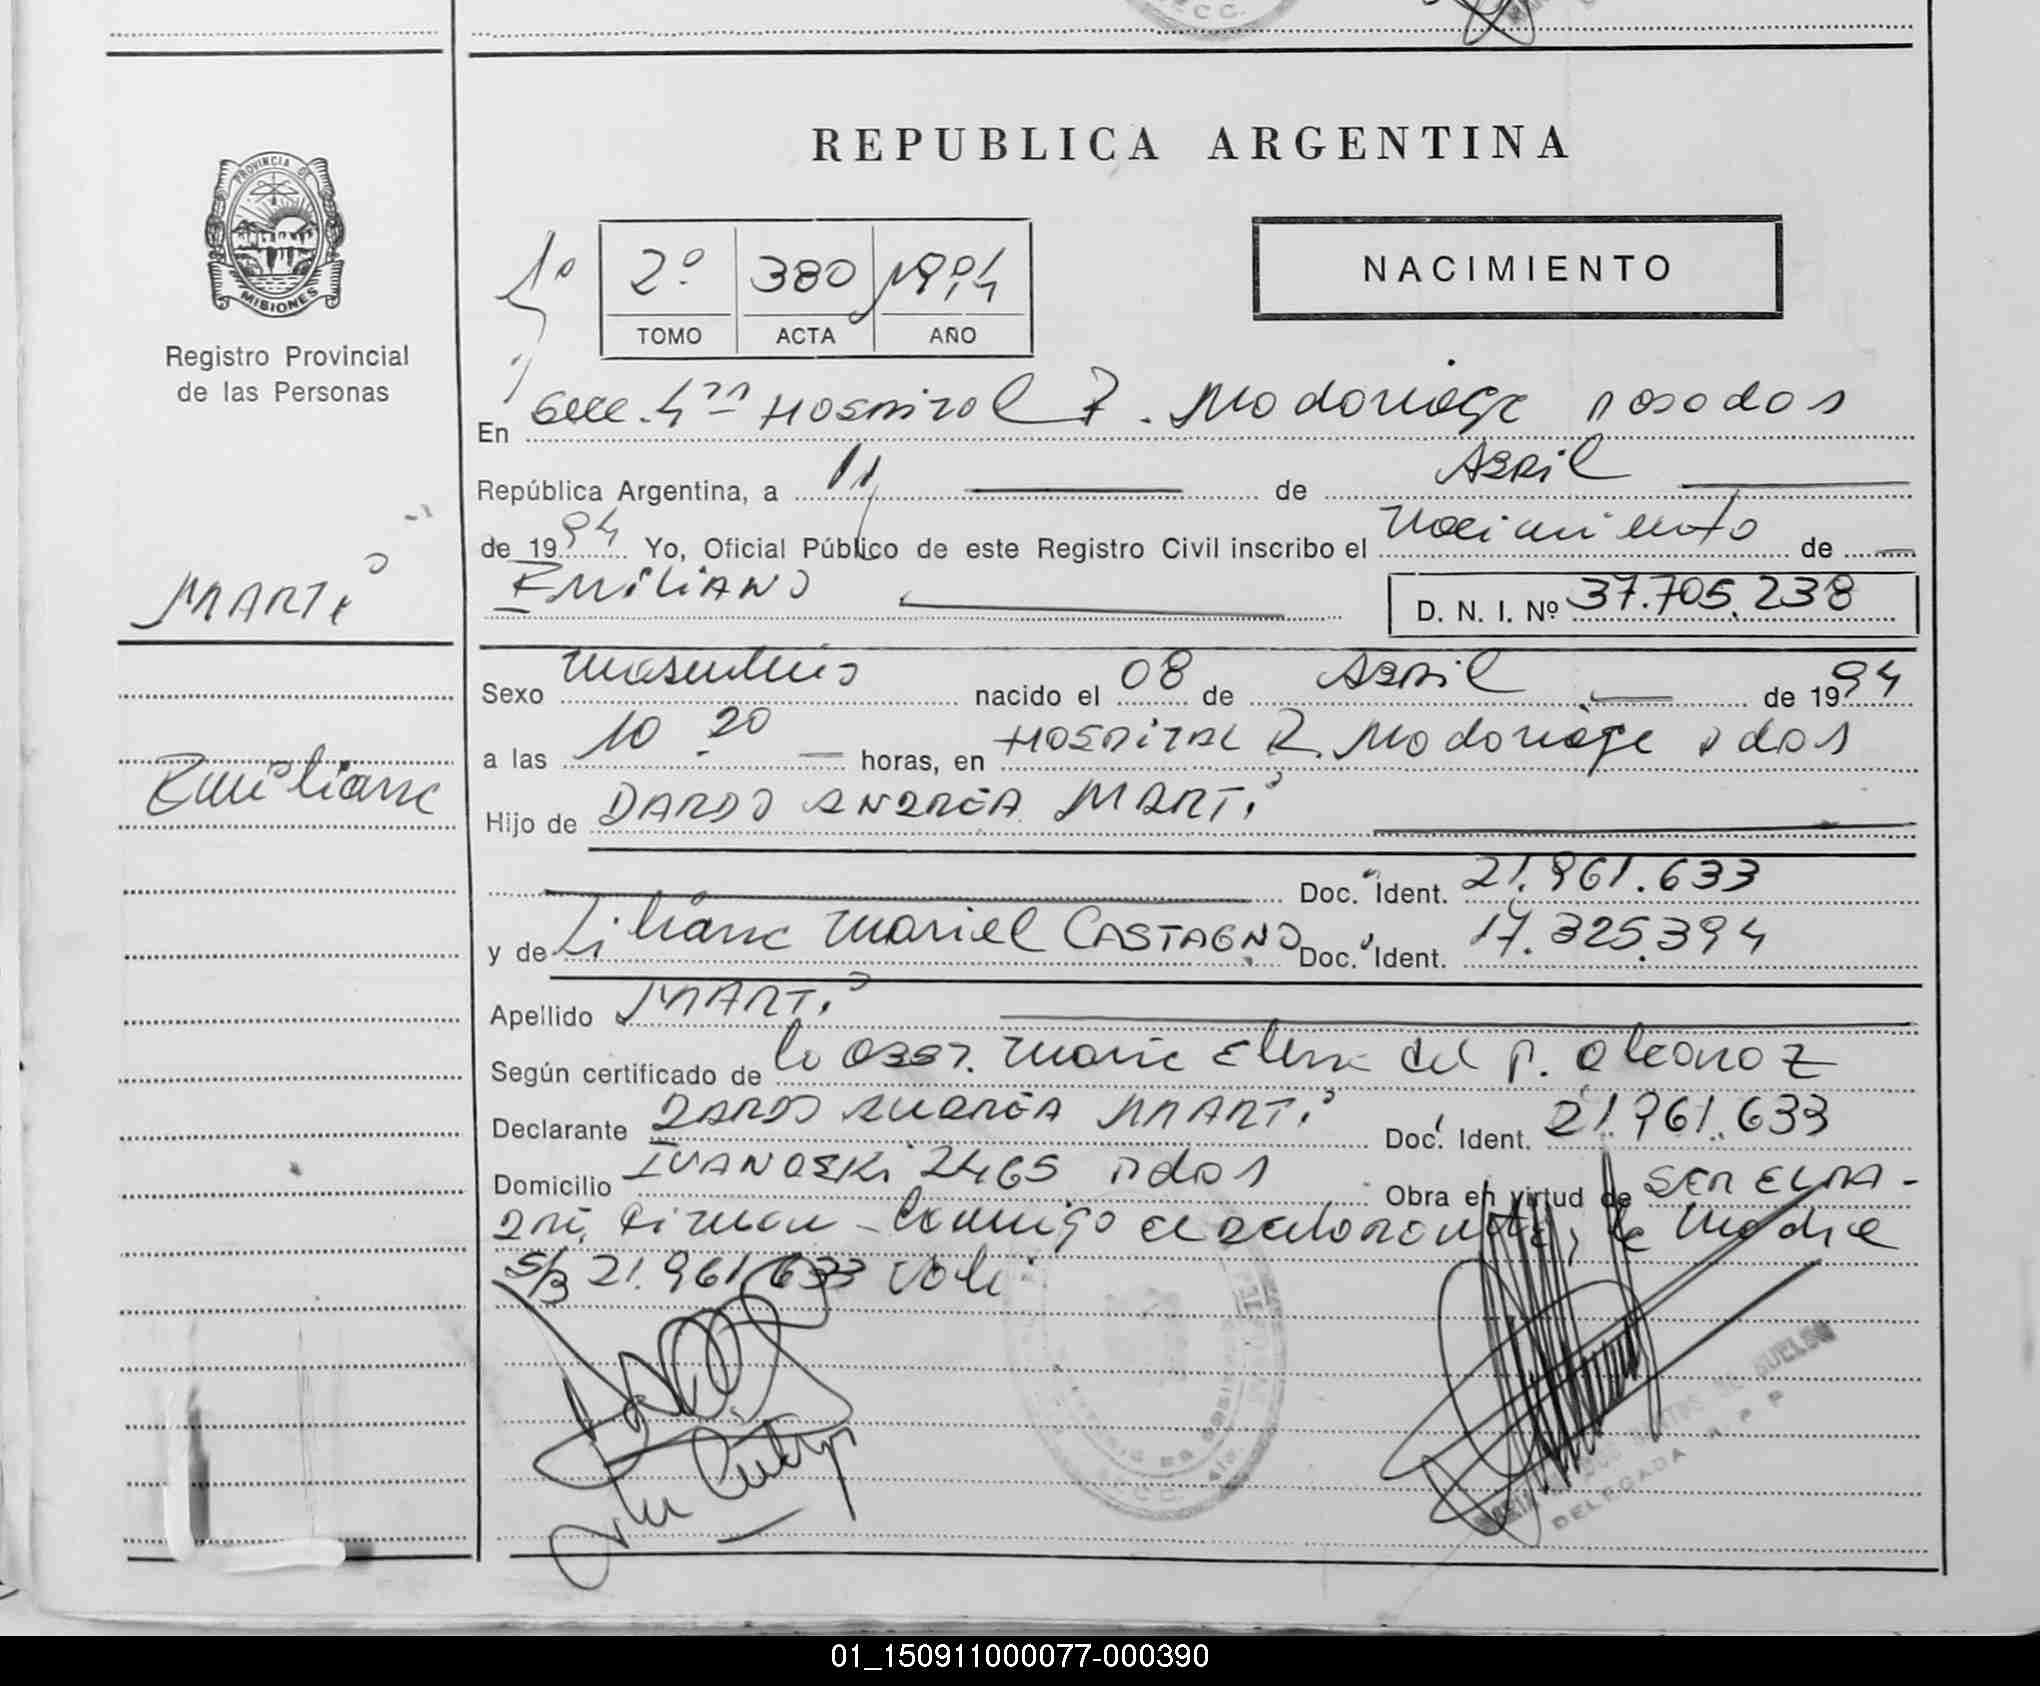 REPUBLICA ARGENTINA
PROVINCIA DE
MISIONES
Registro Provincial
de las Personas
NACIMIENTO
1º 2º 380 1994
TOMO ACTA AÑO
En Secc. 4ta Hospital R. Madariaga Posadas
República Argentina, a 11 de Abril
de 1994 Yo, Oficial Público de este Registro Civil inscribo el Nacimiento de
EMILIANO D. N. I. Nº 37.705.238
MARTÍ
Sexo Masculino nacido el 08 de Abril de 1994
a las 10.20 horas, en HOSPITAL R. Madariaga Pdas
Emiliano
Hijo de DARDO ANDRÉS MARTÍ
Doc. Ident. 21.961.633
y de Liliana Mariel CASTAGNO Doc. Ident. 17.325.394
Apellido MARTÍ
Según certificado de la Obst. Maria Elena del P. Alcaraz
Declarante DARDO ANDRÉS MARTÍ Doc. Ident. 21.961.633
Domicilio 2465 Pdas Obra en virtud de SER EL PA-
DRE. Firman Conmigo el declarante, la Madre
S/B 21.961.633 Vale
DELEGADA R P P
01_150911000077-000390